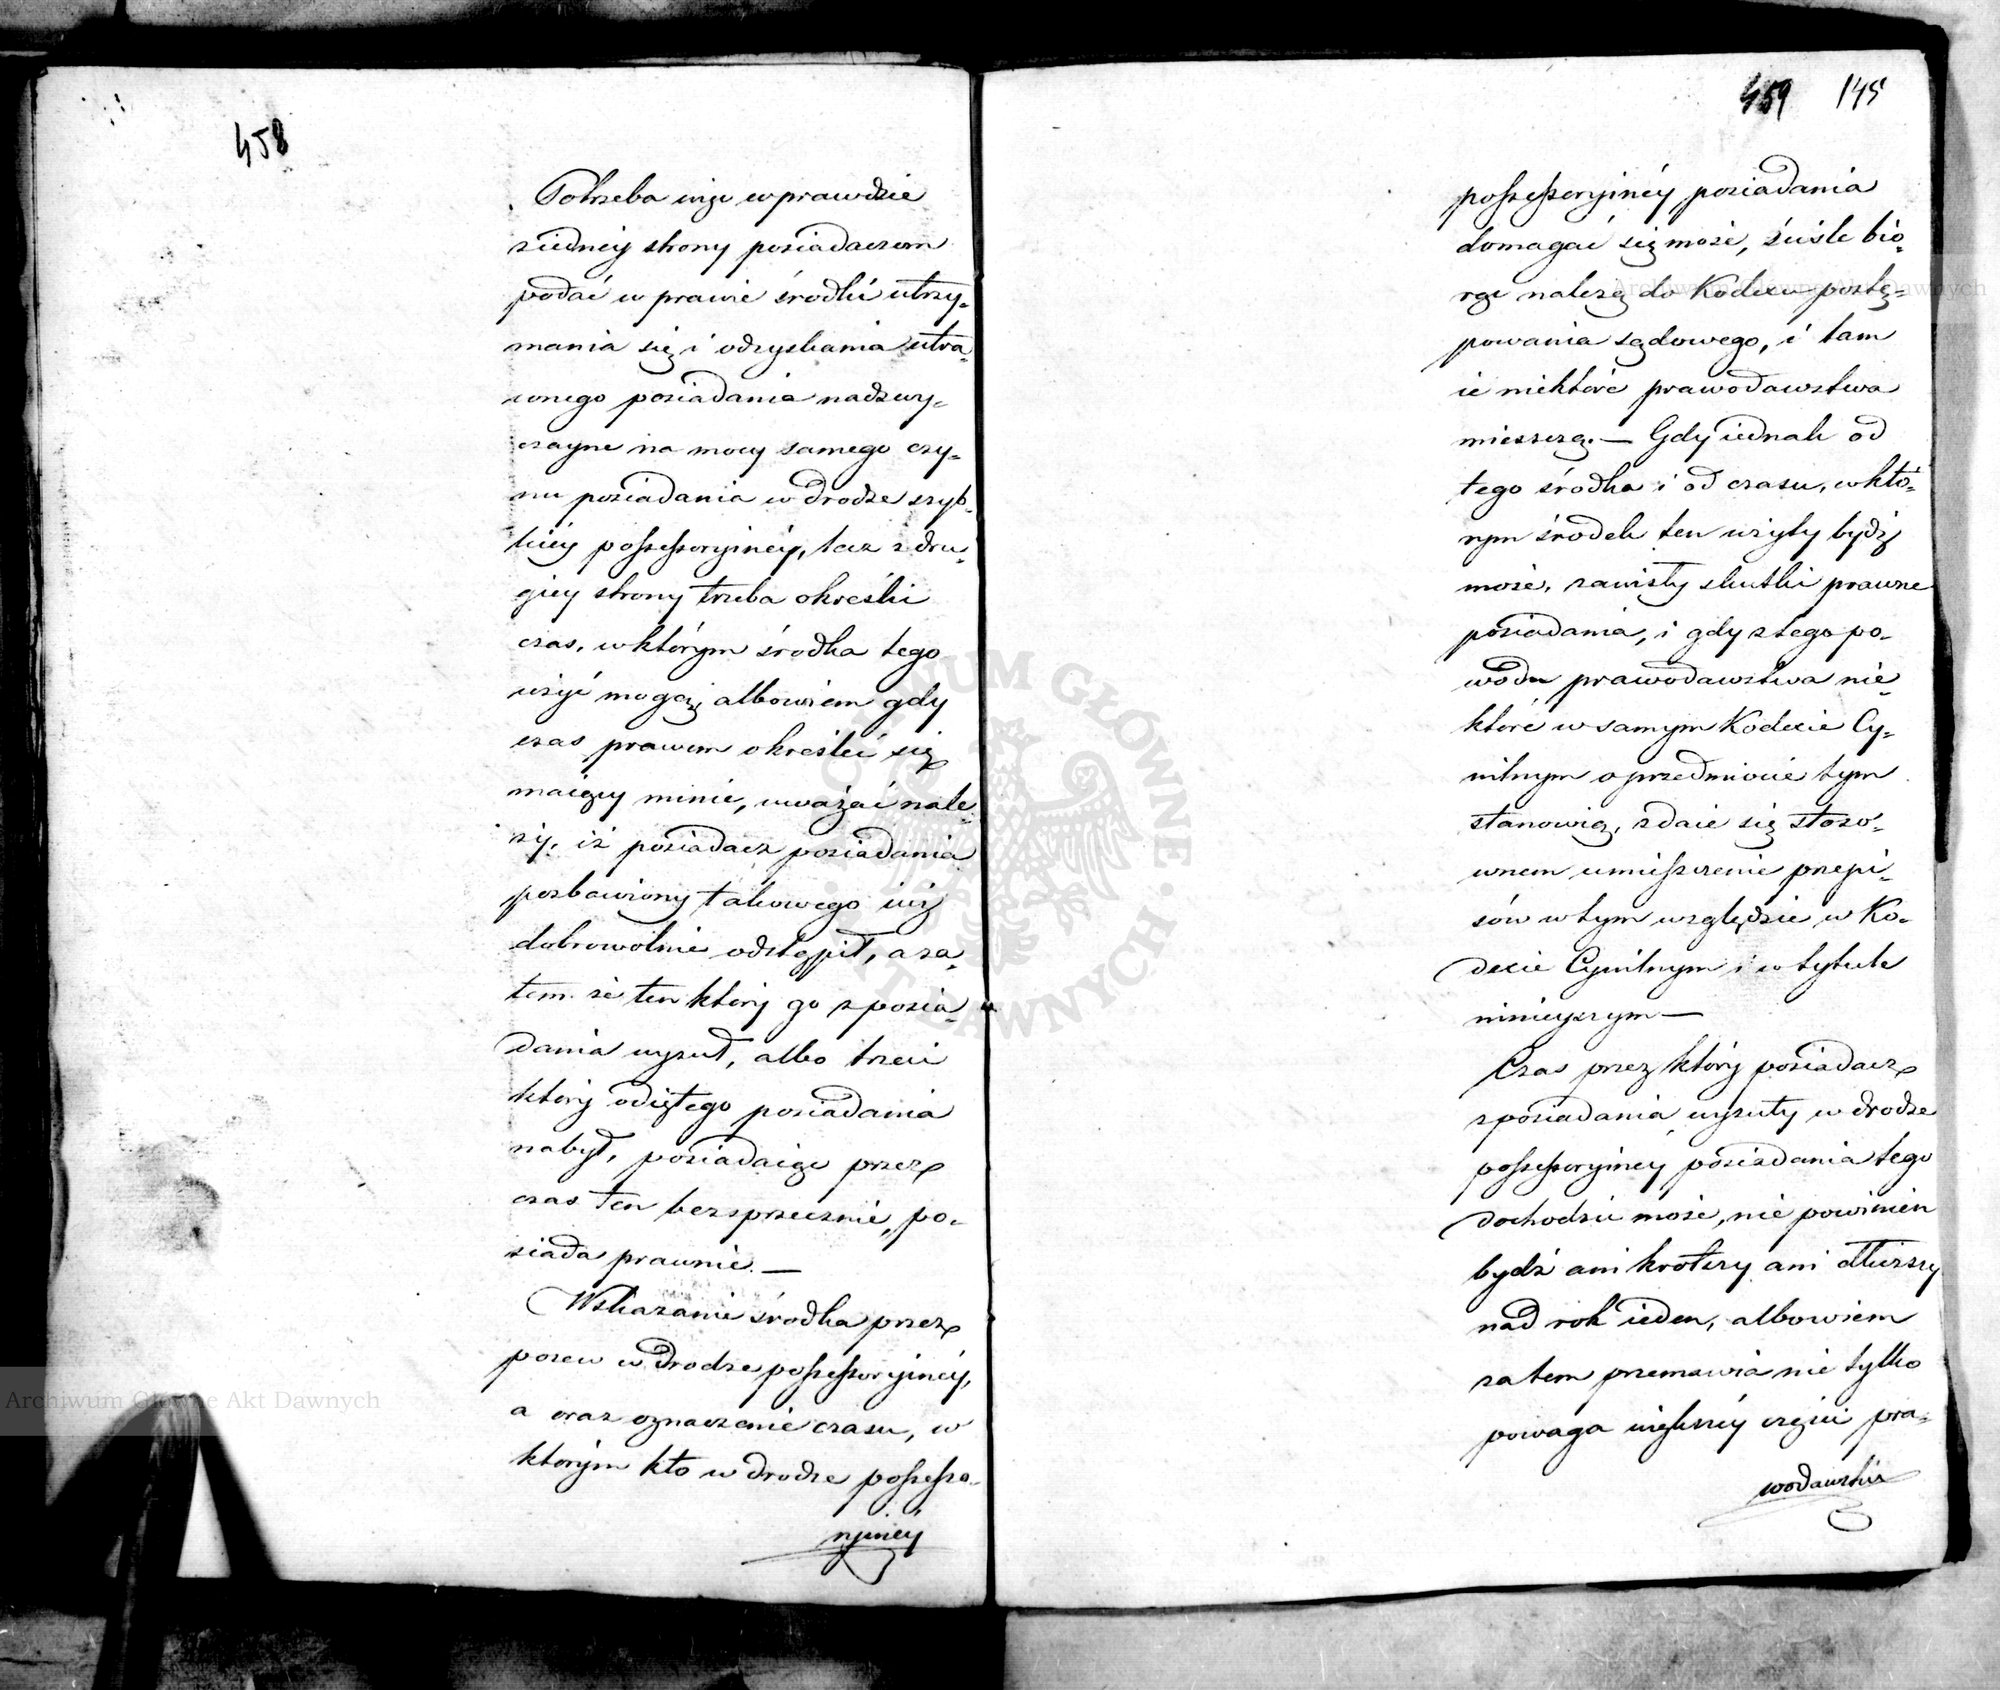 458
Potrzeba więc wprawdzie
z iedney strony posiadaczom
podać w prawie środki utrzy-
mania się i odzyskania utra-
conego posiadania nadzwy-
czayne na mocy samego czy-
nu posiadania w drodze szyb-
kiéy possessoryinéy, lecz z dru-
giey strony trzeba określić
czas, w którym środka tego
użyć mogą, albowiem gdy
czas prawem określić się
maiący minie, uważać nale-
ży, iż posiadacz posiadania
pozbawiony takowego iuż
dobrowolnie odstąpił, a za-
tem że ten który go z posia-
dania wyzuł, albo trzeci
który odiętego posiadania
nabył, posiadaiąc przez
czas ten bezsprzecznie, po-
siada prawnie. —
Wskazanie środka przez
pozew w drodze possessoryinéy,
a oraz oznaczenie czasu, w
którym kto w drodze possesso-
ryinéy
459 145
possessoryinéy posiadania
domagać się może, ściśle bio-
rąc należą do Kodexu postę-
powania sądowego, i tam
ie niektóre prawodawstwa
mieszczą. — Gdy iednak od
tego środka i od czasu, w któ-
rym środek ten użyty bydź
może, zawisły skutki prawne
posiadania, i gdy z tego po-
wodu prawodawstwa nie-
które w samym Kodexie Cy-
wilnym o przedmiocie tym
stanowią, zdaie się stoso-
wnem umieszczenie przepi-
sów w tym względzie w Ko-
dexie Cywilnym i w tytule
ninieyszym —
Czas przez który posiadacz
z posiadania wyzuty w drodze
possessoryinéy posiadania tego
dochodzić może, nie powinien
bydź ani krótszy ani dłuższy
nad rok ieden, albowiem
za tem przemawia nie tylko
powaga większéy części pra-
wodawstw
Archiwum Główne Akt Dawnych
Archiwum Główne Akt Dawnych
ARCHIWUM GŁÓWNE AKT DAWNYCH